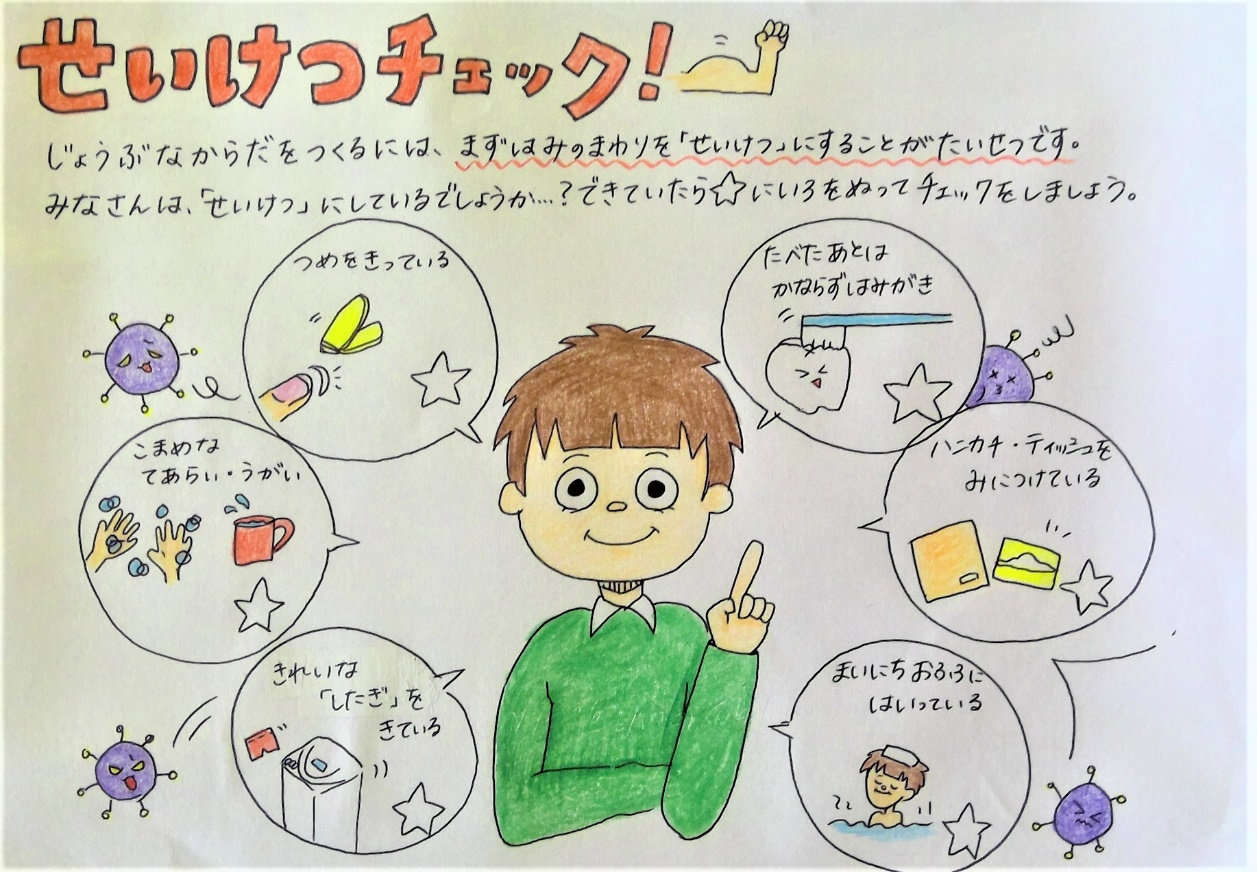 せいけつチェック!
じょうぶなからだをつくるには、まずはみのまわりを「せいけつ」にすることがたいせつです。
みなさんは、「せいけつ」にしているでしょうか…?できていたら☆にいろをぬってチェックをしましょう。
つめをきっている
たべたあとは
かならずはみがき
こまめな
てあらい・うがい
ハンカチ・ティッシュを
みにつけている
きれいな
「したぎ」を
きている
まいにちおふろに
はいっている